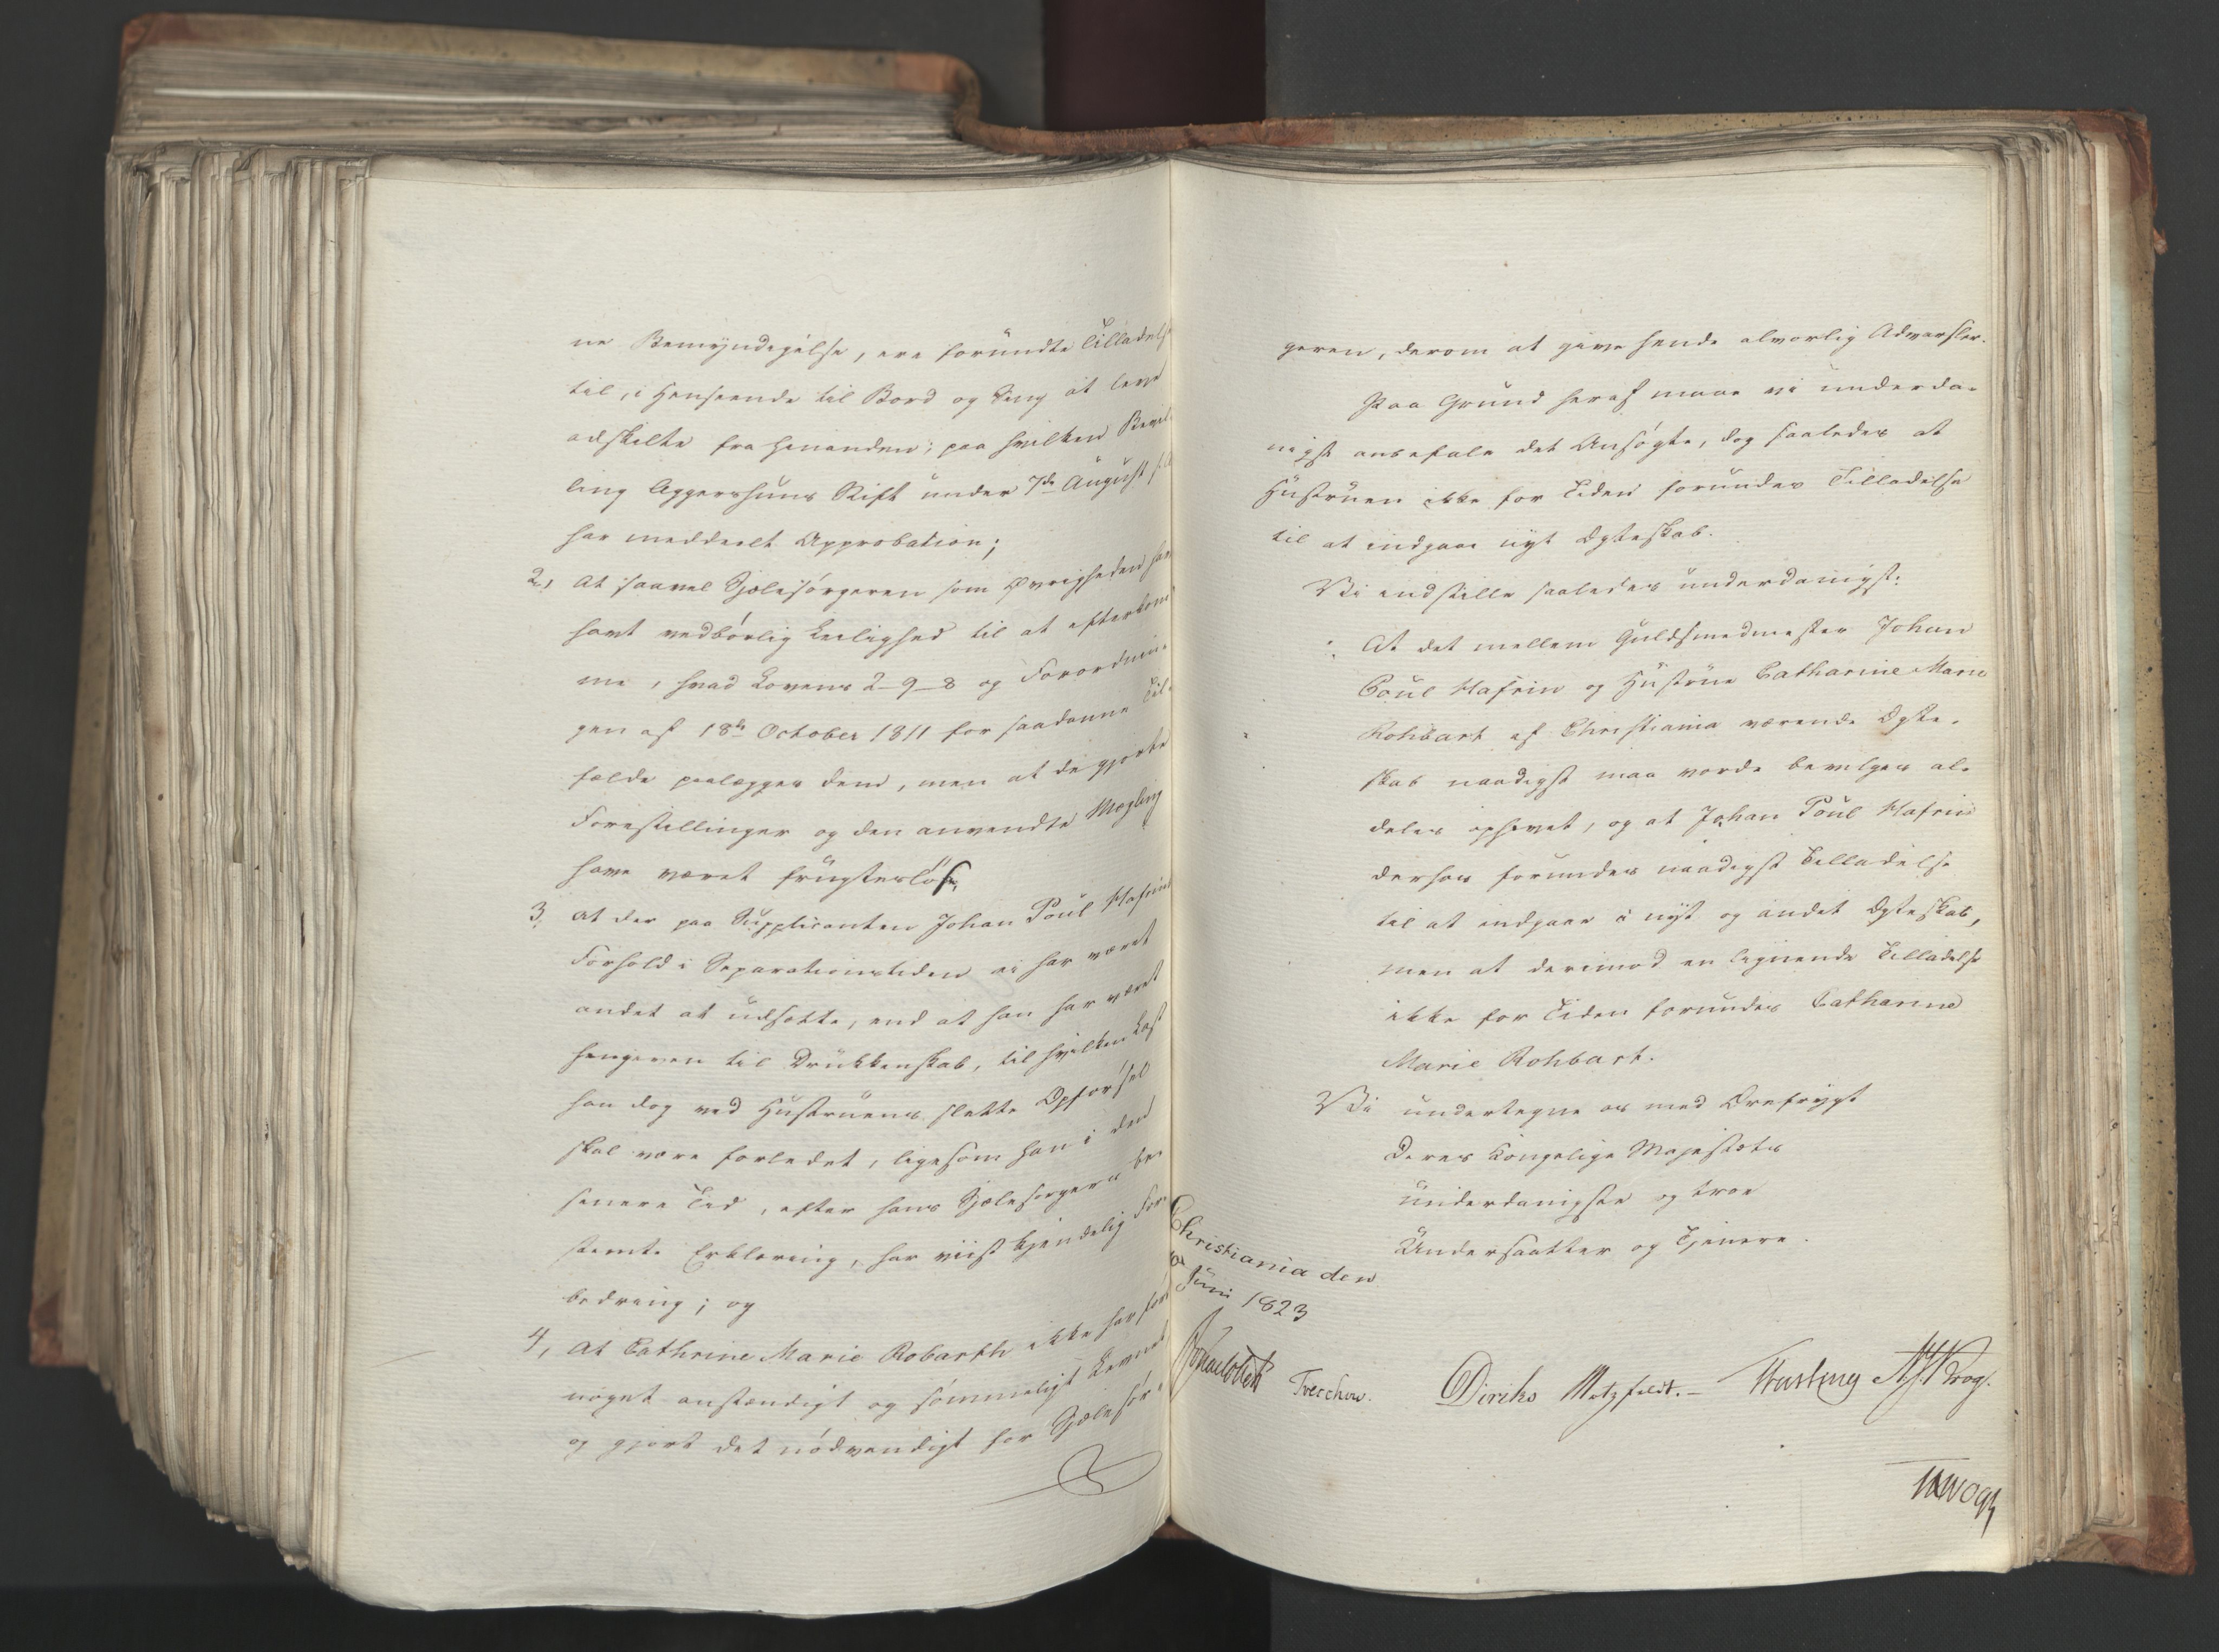 ne Bemyndigelse, ere forundte Tilladelse
til, i Henseende til Bord og Seng at leve
adskilte fra hinanden; paa hvilken Bevil-
ling Aggershuus Stift under 7de August
har meddeelt Approbation;
2, At saavel Sjælesørgeren som Øvrigheden har
havt vedbørlig Leilighed til at efterkom-
me, hvad Lovens 2-9-8 og Forordnin-
gen af 18de October 1811 for saadanne Til-
fælde paalægger dem, men at de gjorte
Forestillinger og den anvendte Mægling
have været frugtesløse,
3, at der paa Supplicanten Johan Poul Hafrins
Forhold i Separationstiden ei har været
andet at udsætte, end at han har været
hengiven til Drukkenskab, til hvilken Last
han dog ved Hustruens slette Opførsel
skal være forledet, ligesom han i den
senere Tid, efter hans Sjælesørgers be-
stemte Erklæring, har viist kjendelig For-
bedring; og
4, At Cathrine Marie Robarth ikke har ført
noget anstændigt og sømmeligt Levnet
og gjort det nødvendigt for Sjælesør-
geren, derom at give hende alvorlig Advarsler.
Paa Grund heraf maae vi underda-
nigst anbefale det Ansøgte, dog saaledes at
Hustruen ikke for Tiden forundes Tilladelse
til at indgaae nyt Ægteskab.
Vi indstille saaledes underdanigst:
At det mellem Guldsmedmester Johan
Poul Hafrin og Hustrue Catharine Marie
Rohbart af Christiania værende Ægte-
skab naadigst maa vorde bevilget al-
deles ophævet, og at Johan Poul Hafrin
derhos forundes naadigst Tilladelse
til at indgaae i nyt og andet Ægteskab,
men at derimod en lignende Tilladelse
ikke for Tiden forundes Catharine
Marie Rohbart.
Vi undertegne os med Ærefrygt
Deres Kongelige Majestæts
underdanigste og troe
Undersaatter og Tjenere.
Christiania den
Juni 1823
Treschow. Diriks Motzfeldt.- Fasting Krog.